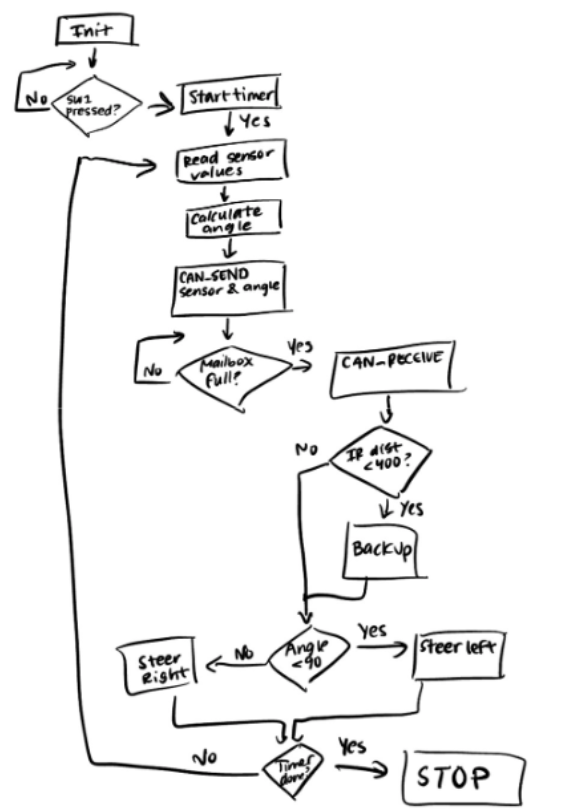 Init
No
SW1
pressed?
Start timer
Yes
Read sensor
values
Calculate
angle
CAN_SEND
sensor & angle
Mailbox
full?
No
Yes
CAN_RECEIVE
No
IR dist
<400?
Yes
Backup
Angle
<90
Yes
Steer left
No
Steer
Right
Timer
done?
No
Yes
STOP